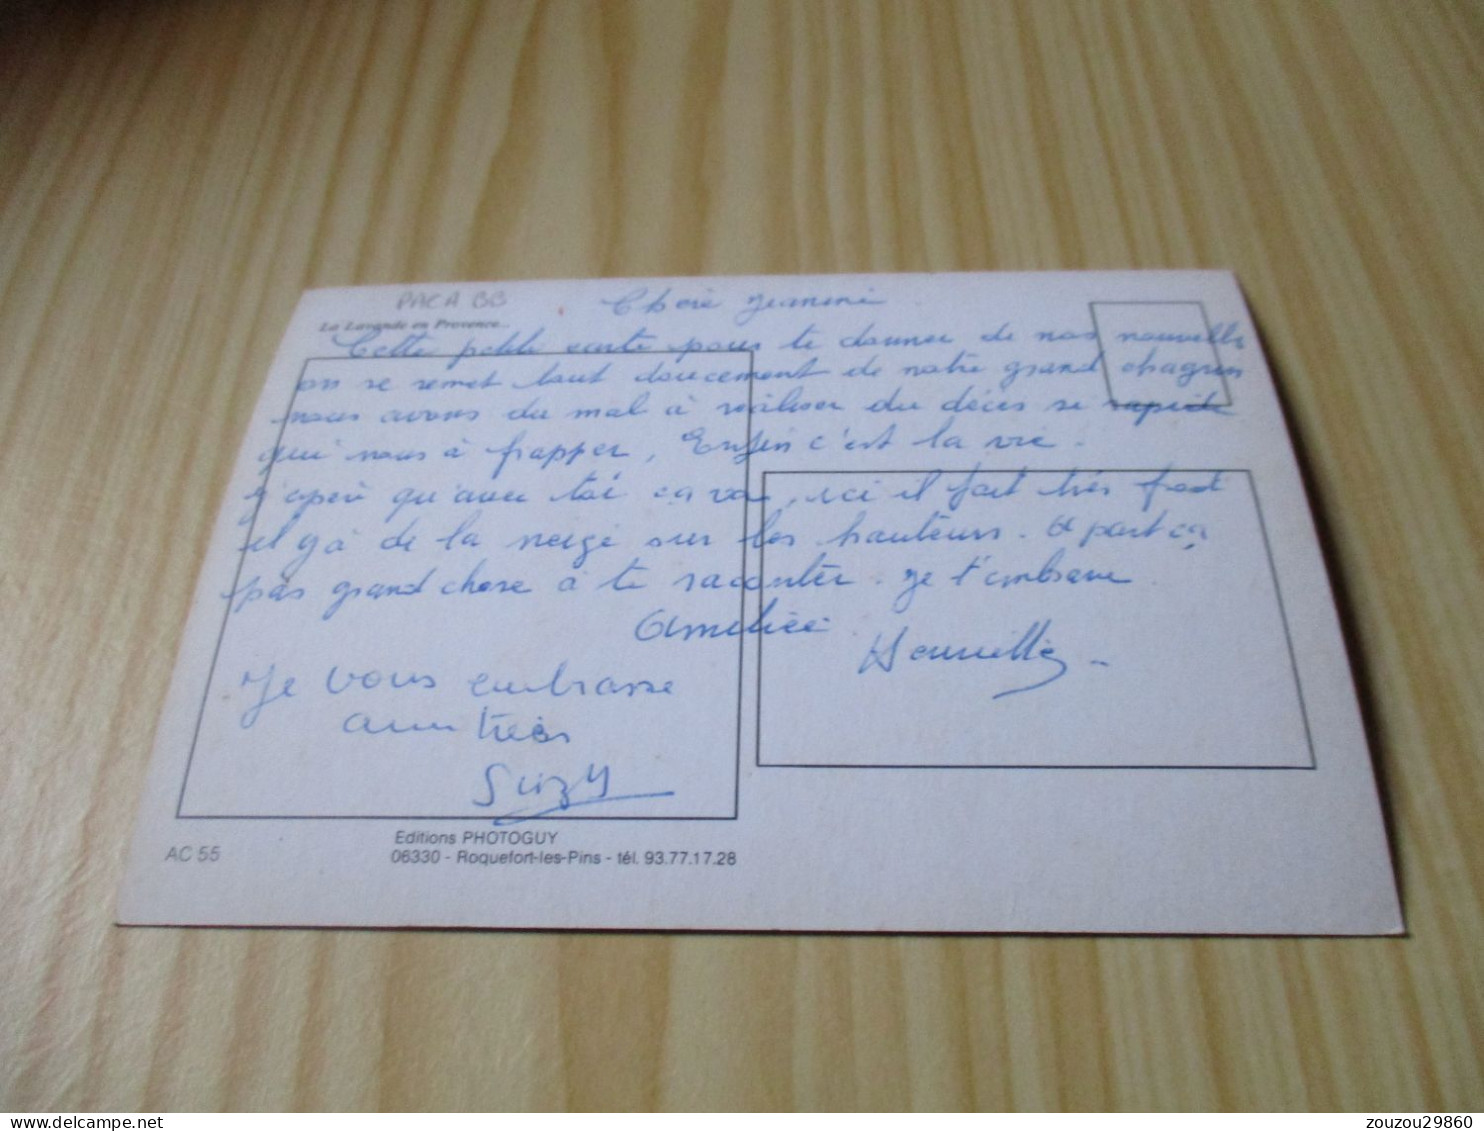 PACA BB
Cherè Jeanine
La Lavande en Provence...
Cette petite carte pour te donner de nos nouvelles
on se remet tout doucement de notre grand chagrin
nous avons du mal à réaliser du décès si rapide
qui nous à frapper, Enfin c'est la vie.
J'éspère qu'avec toi ça va, ici il fait très froid
il y à de la neige sur les hauteurs. A part ça
pas grand chose à te raconter. Je t'embrasse
Amelie
Je vous embrasse
aun très
Suzy
AC 55
Editions PHOTOGUY
06330 - Roquefort-les-Pins - tél. 93.77.17.28
zouzou29860